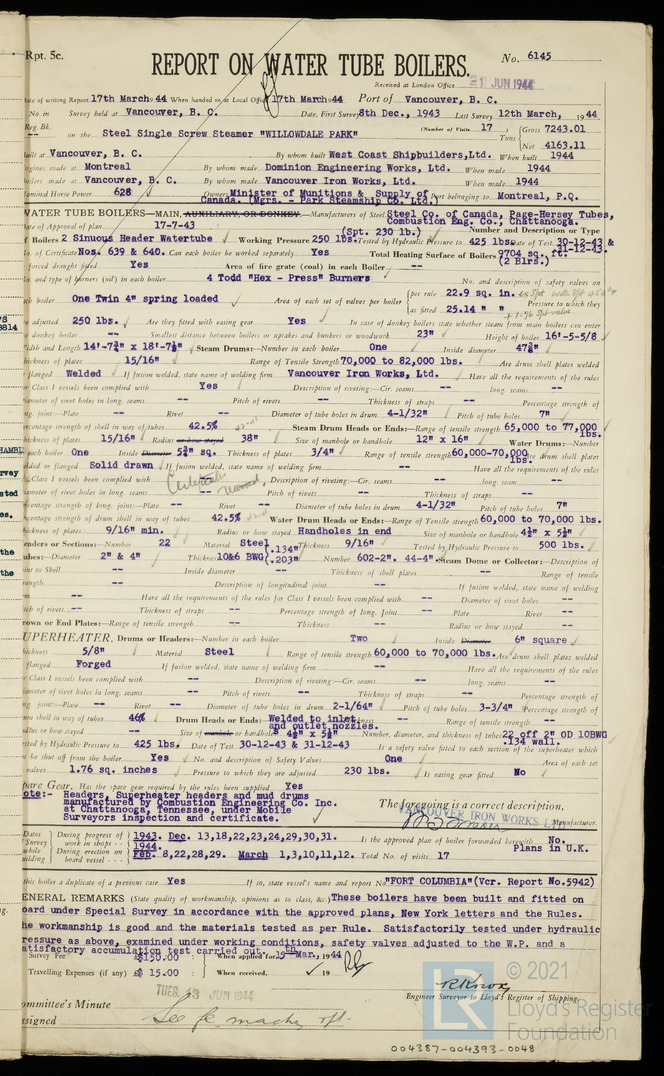 Rpt. 5c.
REPORT ON WATER TUBE BOILERS.
No. 6145
Received at London Office
JUN 1944
ate of writing Report 17th March 1944 When handed in at Local Office 17th March 1944 Port of Vancouver, B. C.
No. in Survey held at Vancouver, B. C. Date, First Survey 8th Dec., 1943 Last Survey 12th March, 1944
Reg. Bk. (Number of Visits 17 ) Gross 7243.01
-- on the Steel Single Screw Steamer "WILLOWDALE PARK" Tons
Net 4163.11
uilt at Vancouver, B. C. By whom built West Coast Shipbuilders,Ltd. When built 1944
ngines made at Montreal By whom made Dominion Engineering Works, Ltd. When made 1944
oilers made at Vancouver, B. C. By whom made Vancouver Iron Works, Ltd. When made 1944
ominal Horse Power 628 Owners Minister of Munitions & Supply of Port belonging to Montreal, P.Q.
Canada. (Mgrs. - Park Steamship Co. Ltd.)
WATER TUBE BOILERS—MAIN, AUXILIARY, OR DONKEY.—Manufacturers of Steel Steel Co. of Canada, Page-Hersey Tubes,
Combustion Eng. Co., Chattanooga.
ate of Approval of plan 17-7-43 (Spt. 230 lb.) Number and Description or Type
f Boilers 2 Sinuous Header Watertube Working Pressure 250 lbs. Tested by Hydraulic Pressure to 425 lbs. Date of Test 30-12-43 &
31-12-43.
o. of Certificate Nos. 639 & 640. Can each boiler be worked separately Yes Total Heating Surface of Boilers 9704 sq. ft.
(2 Blrs.)
forced draught fitted Yes Area of fire grate (coal) in each Boiler --
o. and type of burners (oil) in each boiler 4 Todd "Hex - Press" Burners No. and description of safety valves on
ch boiler One Twin 4" spring loaded Area of each set of valves per boiler per rule 22.9 sq. in.
as fitted 25.14 " " Pressure to which they
e adjusted 250 lbs. Are they fitted with easing gear Yes In case of donkey boilers state whether steam from main boilers can enter
e donkey boiler -- Smallest distance between boilers or uptakes and bunkers or woodwork 23" Height of boiler 16'-5-5/8
idth and Length 14'-7¾" x 18'-7½" Steam Drums:—Number in each boiler One Inside diameter 47¾"
hickness of plates 15/16" Range of Tensile Strength 70,000 to 82,000 lbs. Are drum shell plates welded
flanged Welded If fusion welded, state name of welding firm Vancouver Iron Works, Ltd. Have all the requirements of the rules
Class I vessels been complied with Yes Description of riveting:—Cir. seams -- long. seams --
iameter of rivet holes in long. seams -- Pitch of rivets -- Thickness of straps -- Percentage strength of
ng. joint:—Plate -- Rivet -- Diameter of tube holes in drum 4-1/32" Pitch of tube holes 7"
ercentage strength of shell in way of tubes 42.5% Steam Drum Heads or Ends:—Range of tensile strength 65,000 to 77,000
lbs.
hickness of plates 15/16" Radius or how stayed 38" Size of manhole or handhole 12" x 16" Water Drums:—Number
each boiler One Inside Diameter 5¾" sq. Thickness of plates 3/4" Range of tensile strength 60,000-70,000 drum shell plates
lbs.
elded or flanged Solid drawn If fusion welded, state name of welding firm -- Have all the requirements of the rules
Class I vessels been complied with -- Description of riveting:—Cir. seams -- long. seams --
iameter of rivet holes in long. seams -- Pitch of rivets -- Thickness of straps --
ercentage strength of long. joint:—Plate -- Rivet -- Diameter of tube holes in drum 4-1/32" Pitch of tube holes 7"
ercentage strength of drum shell in way of tubes 42.5% Water Drum Heads or Ends:—Range of Tensile Strength 60,000 to 70,000 lbs.
ickness of plates 9/16" min. Radius or how stayed Handholes in end Size of manhole or handhole 4½" x 5½"
eaders or Sections:—Number 22 Material Steel Thickness 9/16" Tested by Hydraulic Pressure to 500 lbs.
ubes:—Diameter 2" & 4" Thickness 10&6 BWG (.134" .203" Number 602-2". 44-4". Steam Dome or Collector:—Description of
int to Shell -- Inside diameter -- Thickness of shell plates -- Range of tensile
rength -- Description of longitudinal joint -- If fusion welded, state name of welding
rm -- Have all the requirements of the rules for Class I vessels been complied with -- Diameter of rivet holes --
tch of rivets -- Thickness of straps -- Percentage strength of long. Joint -- Plate -- Rivet --
rown or End Plates:—Range of tensile strength -- Thickness -- Radius or how stayed --
UPERHEATER. Drums or Headers:—Number in each boiler Two Inside Diameter 6" square
hickness 5/8" Material Steel Range of tensile strength 60,000 to 70,000 lbs. Are drum shell plates welded
flanged Forged If fusion welded, state name of welding firm -- Have all the requirements of the rules
Class I vessels been complied with -- Description of riveting:—Cir. seams -- long. seams --
iameter of rivet holes in long. seams -- Pitch of rivets -- Thickness of straps -- Percentage strength of
ng. joint:—Plate -- Rivet -- Diameter of tube holes in drum 2-1/64" Pitch of tube holes 3-3/4" Percentage strength of
um shell in way of tubes 46% Drum Heads or Ends: Welded to inlet Range of tensile strength --
and outlet nozzles.
adius or how stayed -- Size of manhole or handhole 4½" x 5½" Number, diameter, and thickness of tubes 22 off 2" OD 10BWG
.134 wall.
ested by Hydraulic Pressure to 425 lbs. Date of Test 30-12-43 & 31-12-43 Is a safety valve fitted to each section of the superheater which
n be shut off from the boiler Yes No. and description of Safety Valves One Area of each set
valves 1.76 sq. inches Pressure to which they are adjusted 230 lbs. Is easing gear fitted No
pare Gear. Has the spare gear required by the rules been supplied Yes
ote:- Headers, Superheater headers and mud drums
manufactured by Combustion Engineering Co. Inc.
at Chattanooga, Tennessee, under Mobile
Surveyors inspection and certificate.
The foregoing is a correct description,
VANCOUVER IRON WORKS LTD
Manufacturer.
Dates of Survey while building
During progress of work in shops - - 1943. Dec. 13,18,22,23,24,29,30,31.
1944.
During erection on board vessel - - - Feb. 8,22,28,29. March 1,3,10,11,12.
Is the approved plan of boiler forwarded herewith No.
Plans in U.K.
Total No. of visits 17
this boiler a duplicate of a previous case Yes If so, state vessel's name and report No. "FORT COLUMBIA"(Vcr. Report No.5942)
ENERAL REMARKS (State quality of workmanship, opinions as to class, &c.) These boilers have been built and fitted on
oard under Special Survey in accordance with the approved plans, New York letters and the Rules.
he workmanship is good and the materials tested as per Rule. Satisfactorily tested under hydraulic
ressure as above, examined under working conditions, safety valves adjusted to the W.P. and a
atisfactory accumulation test carried out.
Survey Fee $150.00 : When applied for, 15th Mar., 1944
Travelling Expenses (if any) $ 15.00 : When received, 19
TUES. 13 JUN 1944
Engineer Surveyor to Lloyd's Register of Shipping
ommittee's Minute
ssigned
© 2021
Lloyd's Register
Foundation
004387-004393-0048